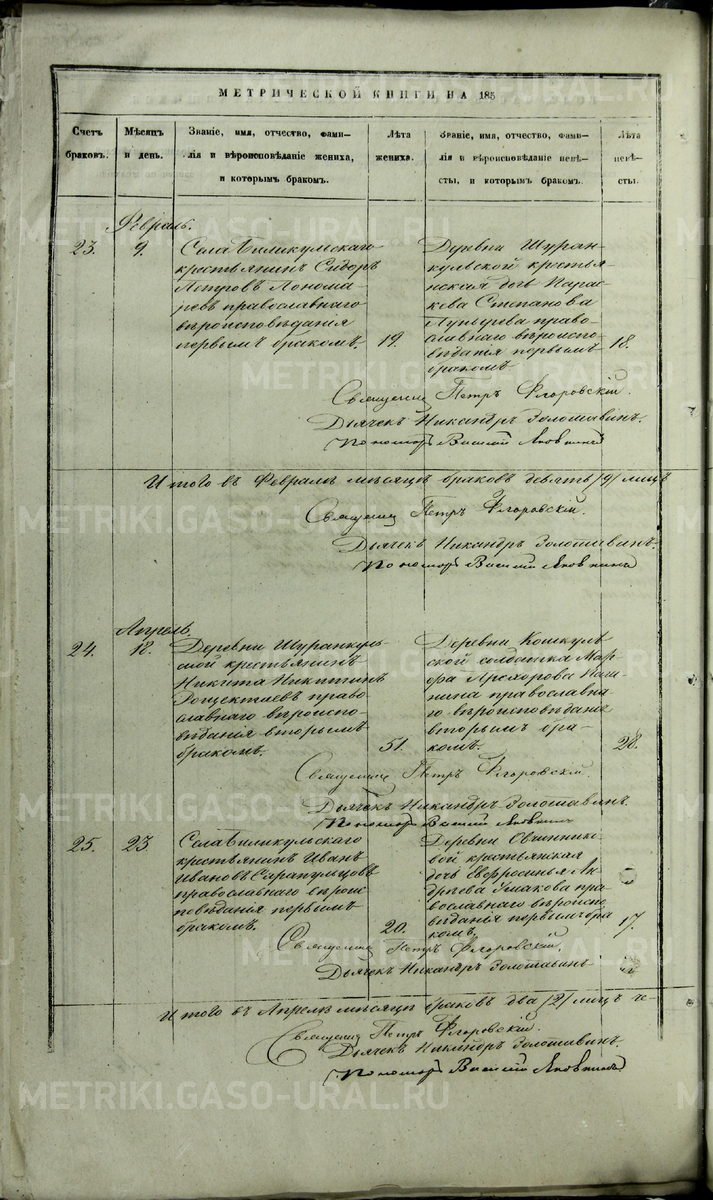 МЕТРИЧЕСКОЙ КНИГИ НА 185
Счетъ браковъ.
Мѣсяцъ и день.
Званіе, имя, отчество, фами-
лія и вѣроисповѣданіе жениха,
и которымъ бракомъ.
Лѣта жениха.
Званіе, имя, отчество, фами-
лія и вѣроисповѣданіе невѣ-
сты, и которымъ бракомъ.
Лѣта невѣ-
сты.
Февраль.
23.
9.
Села Биликульскаго
крестьянинъ Сидоръ
Петровъ Понома-
ревъ православнаго
вѣроисповѣданія
первымъ бракомъ.
19.
Деревни Шуран-
кульской крестья-
нская дочь Парас-
кева Степанова
право-
славнаго вѣроиспо-
вѣданія первымъ
бракомъ
18.
Священникъ Петръ Флоровскій.
Дьячекъ Никандръ Золотавинъ.
Пономарь Василій
Итого въ Февралѣ мѣсяцѣ браковъ девять /9/ лицъ
Священникъ Петръ Флоровскій.
Дьячекъ Никандръ Золотавинъ.
Пономарь Василій
Апрель.
24.
18.
Деревни Шуранкуль-
ской крестьянинъ
Никита Никитинъ
право-
славнаго вѣроиспо-
вѣданія вторымъ
бракомъ.
51.
Деревни Кошкуль-
ской солдатка Мар-
фа Прохорова
православна-
го вѣроисповѣданія
вторымъ бра-
комъ.
28.
Священникъ Петръ Флоровскій.
Дьячекъ Никандръ Золотавинъ.
Пономарь Василій
25.
23.
Села Биликульскаго
крестьянинъ Иванъ
Ивановъ Сарапульцовъ
православнаго вѣрои-
споведанія первымъ
бракомъ.
20.
Деревни Овчинни-
вой крестьянская
дочь Евфросинья Ан-
дреева Ушакова пра-
вославнаго вѣроиспо-
вѣданія первымъ бра-
комъ.
17.
Священникъ Петръ Флоровскій.
Дьячекъ Никандръ Золотавинъ
Итого въ Апрелѣ мѣсяцѣ браковъ два /2/ лицъ че-
Священникъ Петръ Флоровскій.
Дьячекъ Никандръ Золотавинъ.
Пономарь Василій
METRIKI.GASO-URAL.RU